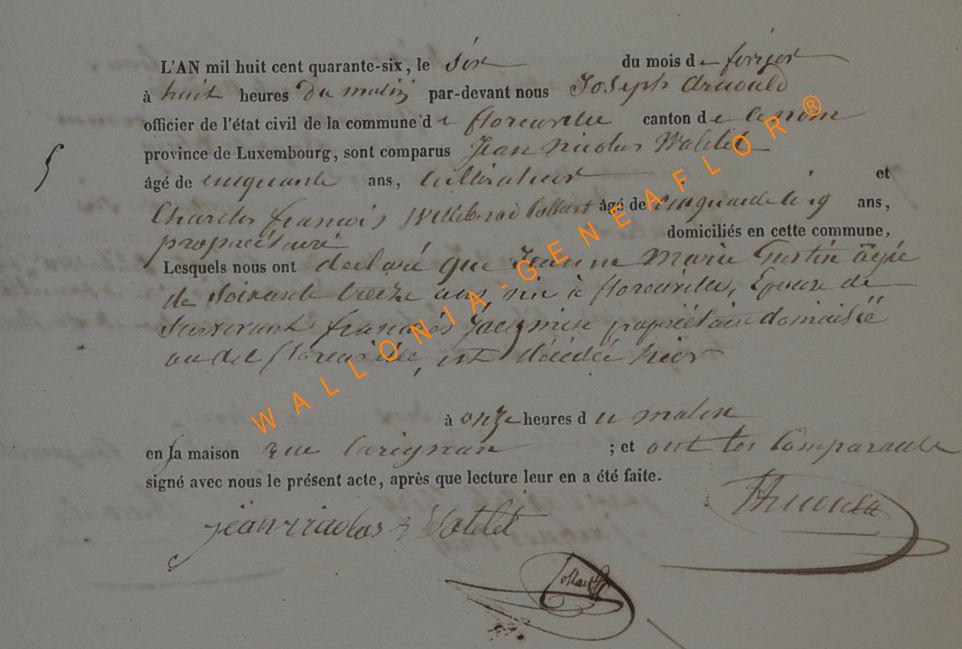 L'AN mil huit cent quarante-six, le six du mois de fevrier
à huit heures du matin par-devant nous Joseph Arnould
officier de l'état civil de la commune de florenville canton de le nom
province de Luxembourg, sont comparus Jean Nicolas Watelet
5
âgé de cinquante ans, Cultivateur et
Charles françois Willebrod Collart âgé de cinquante cinq ans,
propriétaire domiciliés en cette commune,
Lesquels nous ont declaré que Jeanne Marie Gustin âgée
de Soixante treize ans, née à florenville, Epouse de
Survivant françois Jacqmin propriétaire domicilié
au dit florenville, est décédée hier
à onze heures du matin
en sa maison rue Carignan ; et ont les Comparants
signé avec nous le présent acte, après que lecture leur en a été faite.
jean nicolas Watelet
Collart
WALLONIA-GENEAFLOR ®